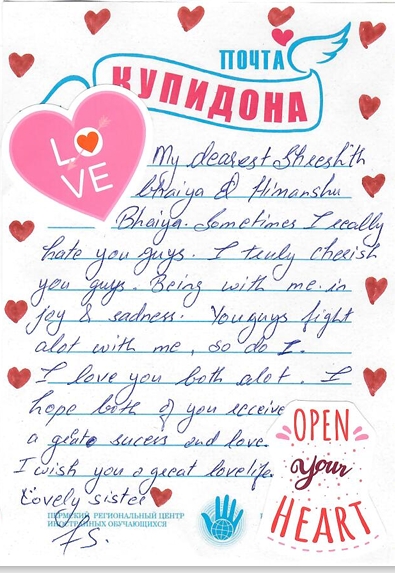 ПОЧТА
КУПИДОНА
LOVE
My dearest Shreshth
bhaiya & Himanshu
Bhaiya. Sometimes I really
hate you guys. I truly cherish
you guys. Being with me in
joy & sadness. You guys fight
alot with me, so do I.
I love you both alot. I
hope both of you receive
a great success and love.
I wish you a great lovelife.
Lovely sister
ПЕРМСКИЙ РЕГИОНАЛЬНЫЙ ЦЕНТР
ИНОСТРАННЫХ ОБУЧАЮЩИХСЯ
OPEN
your
HEART